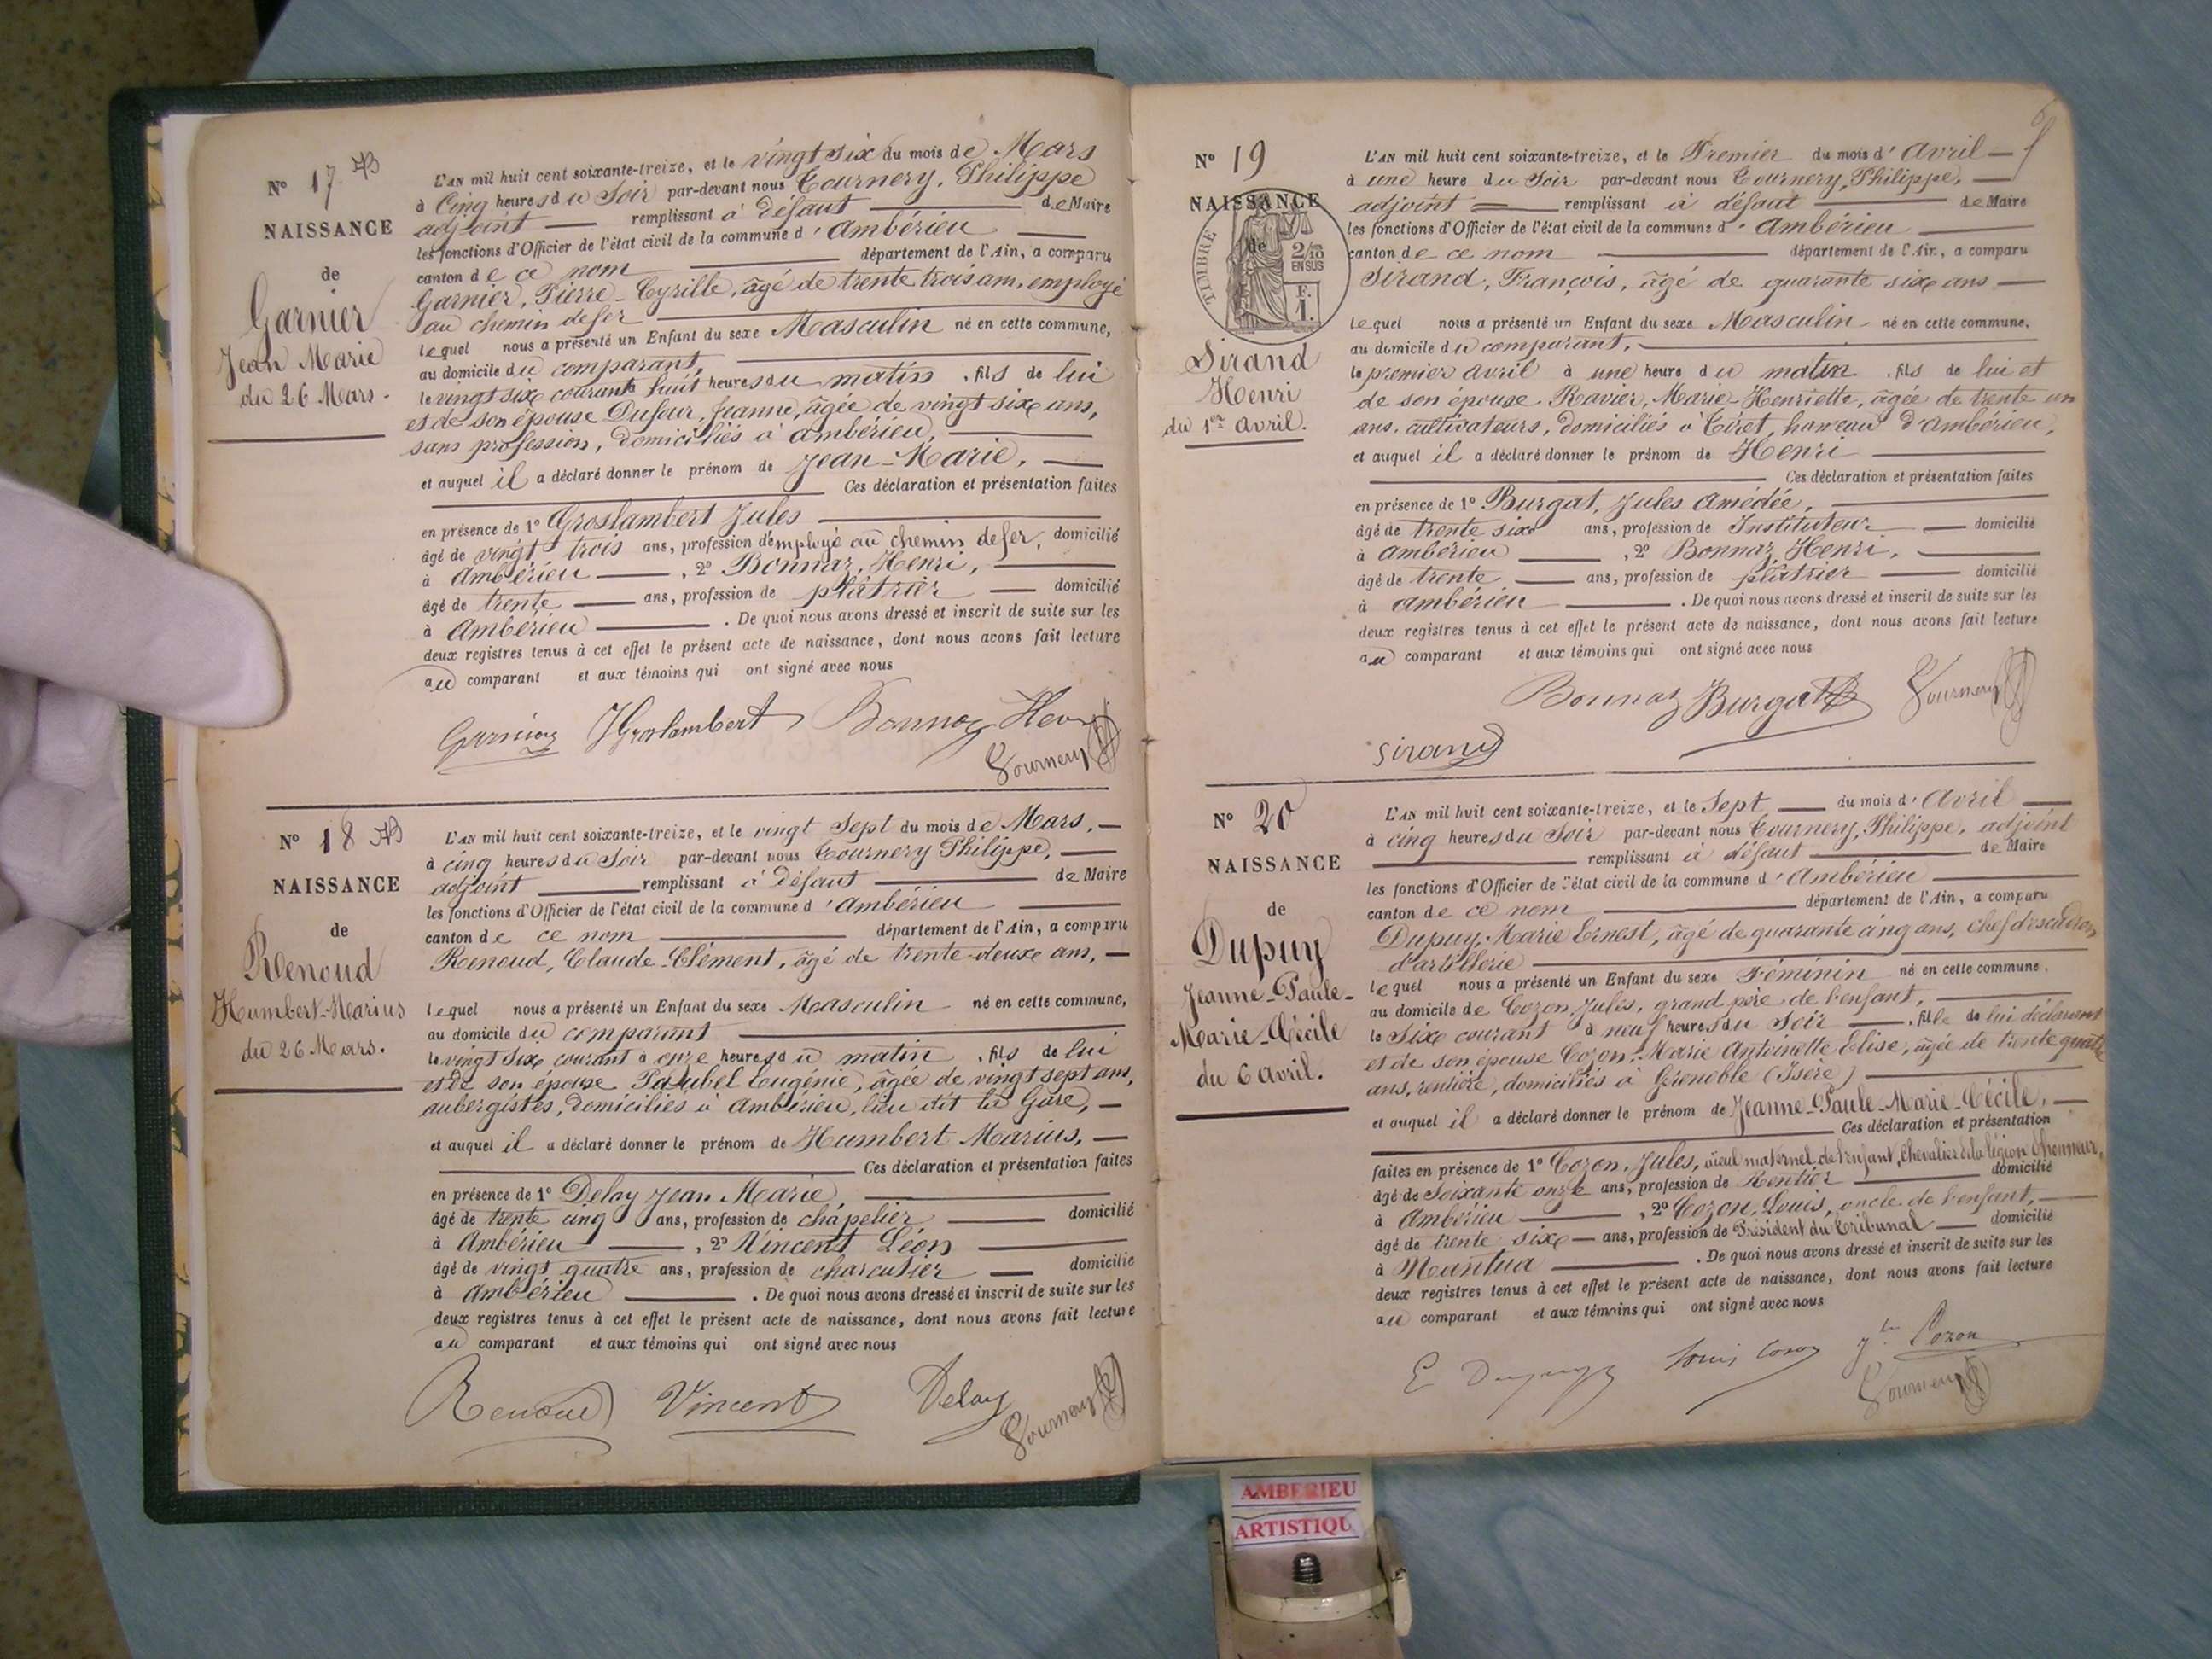 N° 17
NAISSANCE
de
Garnier
Jean Marie
du 26 Mars.
L'AN mil huit cent soixante-treize, et le vingt six du mois de Mars
à Cinq heures du Soir par-devant nous Tournery, Philippe
adjoint remplissant à défaut de Maire
les fonctions d'Officier de l'état civil de la commune d'Ambérieu
canton de ce nom département de l'Ain, a comparu
Garnier, Pierre-Cyrille, âgé de trente trois ans, employé
au chemin de fer
lequel nous a présenté un Enfant du sexe Masculin né en cette commune,
au domicile du comparant,
le vingt six courant à huit heures du matin, fils de lui
et de son épouse Dufour, Jeanne, âgée de vingt six ans,
sans profession, domiciliés à Ambérieu,
et auquel il a déclaré donner le prénom de Jean-Marie,
Ces déclaration et présentation faites
en présence de 1° Groslambert Jules
âgé de vingt trois ans, profession d'employé au chemin de fer, domicilié
à Ambérieu, 2° Bonnaz, Henri,
âgé de trente ans, profession de plâtrier domicilié
à Ambérieu. De quoi nous avons dressé et inscrit de suite sur les
deux registres tenus à cet effet le présent acte de naissance, dont nous avons fait lecture
au comparant et aux témoins qui ont signé avec nous
Garnier JGroslambert Bonnaz Henri
Tournery
N° 18
NAISSANCE
de
Renoud
Humbert-Marius
du 26 Mars.
L'AN mil huit cent soixante-treize, et le vingt Sept du mois de Mars,
à cinq heures du Soir par-devant nous Tournery Philippe,
adjoint remplissant à défaut de Maire
les fonctions d'Officier de l'état civil de la commune d'Ambérieu
canton de ce nom département de l'Ain, a comparu
Renoud, Claude-Clément, âgé de trente-deux ans,
lequel nous a présenté un Enfant du sexe Masculin né en cette commune,
au domicile du comparant
le vingt six courant à onze heures du matin, fils de lui
et de son épouse Eugénie, âgée de vingt sept ans,
aubergistes, domiciliés à Ambérieu, lieu dit la Gare,
et auquel il a déclaré donner le prénom de Humbert Marius,
Ces déclaration et présentation faites
en présence de 1° Delay Jean Marie,
âgé de trente cinq ans, profession de chapelier domicilié
à Ambérieu, 2° Vincent Léon
âgé de vingt quatre ans, profession de charcutier domicilié
à Ambérieu. De quoi nous avons dressé et inscrit de suite sur les
deux registres tenus à cet effet le présent acte de naissance, dont nous avons fait lecture
au comparant et aux témoins qui ont signé avec nous
Renoud Vincent Delay
Tournery
N° 19
NAISSANCE
de
TIMBRE
2/10
EN SUS
F.
1.
Sirand
Henri
du 1er avril.
L'AN mil huit cent soixante-treize, et le Premier du mois d'Avril
à une heure du Soir par-devant nous Tournery, Philippe,
adjoint remplissant à défaut de Maire
les fonctions d'Officier de l'état civil de la commune d'Ambérieu
canton de ce nom département de l'Ain, a comparu
Sirand, François, âgé de quarante six ans
lequel nous a présenté un Enfant du sexe Masculin né en cette commune,
au domicile du comparant,
le premier avril à une heure du matin, fils de lui et
de son épouse Ravier, Marie-Henriette, âgée de trente un
ans, cultivateurs, domiciliés à Tiret, hameau d'Ambérieu,
et auquel il a déclaré donner le prénom de Henri
Ces déclaration et présentation faites
en présence de 1° Burgat, Jules Amédée,
âgé de trente six ans, profession de Instituteur domicilié
à Ambérieu, 2° Bonnaz Henri,
âgé de trente ans, profession de plâtrier domicilié
à Ambérieu. De quoi nous avons dressé et inscrit de suite sur les
deux registres tenus à cet effet le présent acte de naissance, dont nous avons fait lecture
au comparant et aux témoins qui ont signé avec nous
Bonnaz Burgat Tournery
Sirand
N° 20
NAISSANCE
de
Dupuy
Jeanne-Paule-
Marie-Cécile
du 6 Avril.
L'AN mil huit cent soixante-treize, et le Sept du mois d'Avril
à cinq heures du Soir par-devant nous Tournery, Philippe, adjoint
remplissant à défaut de Maire
les fonctions d'Officier de l'état civil de la commune d'Ambérieu
canton de ce nom département de l'Ain, a comparu
Dupuy, Marie Ernest, âgé de quarante cinq ans, chef d'escadron
d'artillerie
lequel nous a présenté un Enfant du sexe Féminin né en cette commune,
au domicile de Cozon, Jules, grand père de l'enfant,
le Six courant à neuf heures du Soir, fille de lui déclarant
et de son épouse Cozon, Marie Antoinette Elise, âgée de trente quatre
ans, rentière, domiciliés à Grenoble (Isère)
et auquel il a déclaré donner le prénom de Jeanne-Paule-Marie-Cécile,
Ces déclaration et présentation
faites en présence de 1° Cozon, Jules, aïeul maternel de l'enfant, Chevalier de la légion d'honneur,
âgé de Soixante onze ans, profession de Rentier domicilié
à Ambérieu, 2° Cozon, Louis, oncle de l'enfant,
âgé de trente six ans, profession de Président du Tribunal domicilié
à Nantua. De quoi nous avons dressé et inscrit de suite sur les
deux registres tenus à cet effet le présent acte de naissance, dont nous avons fait lecture
au comparant et aux témoins qui ont signé avec nous
E Dupuy Louis Cozon Jles Cozon
Tournery
AMBERIEU
ARTISTIQU